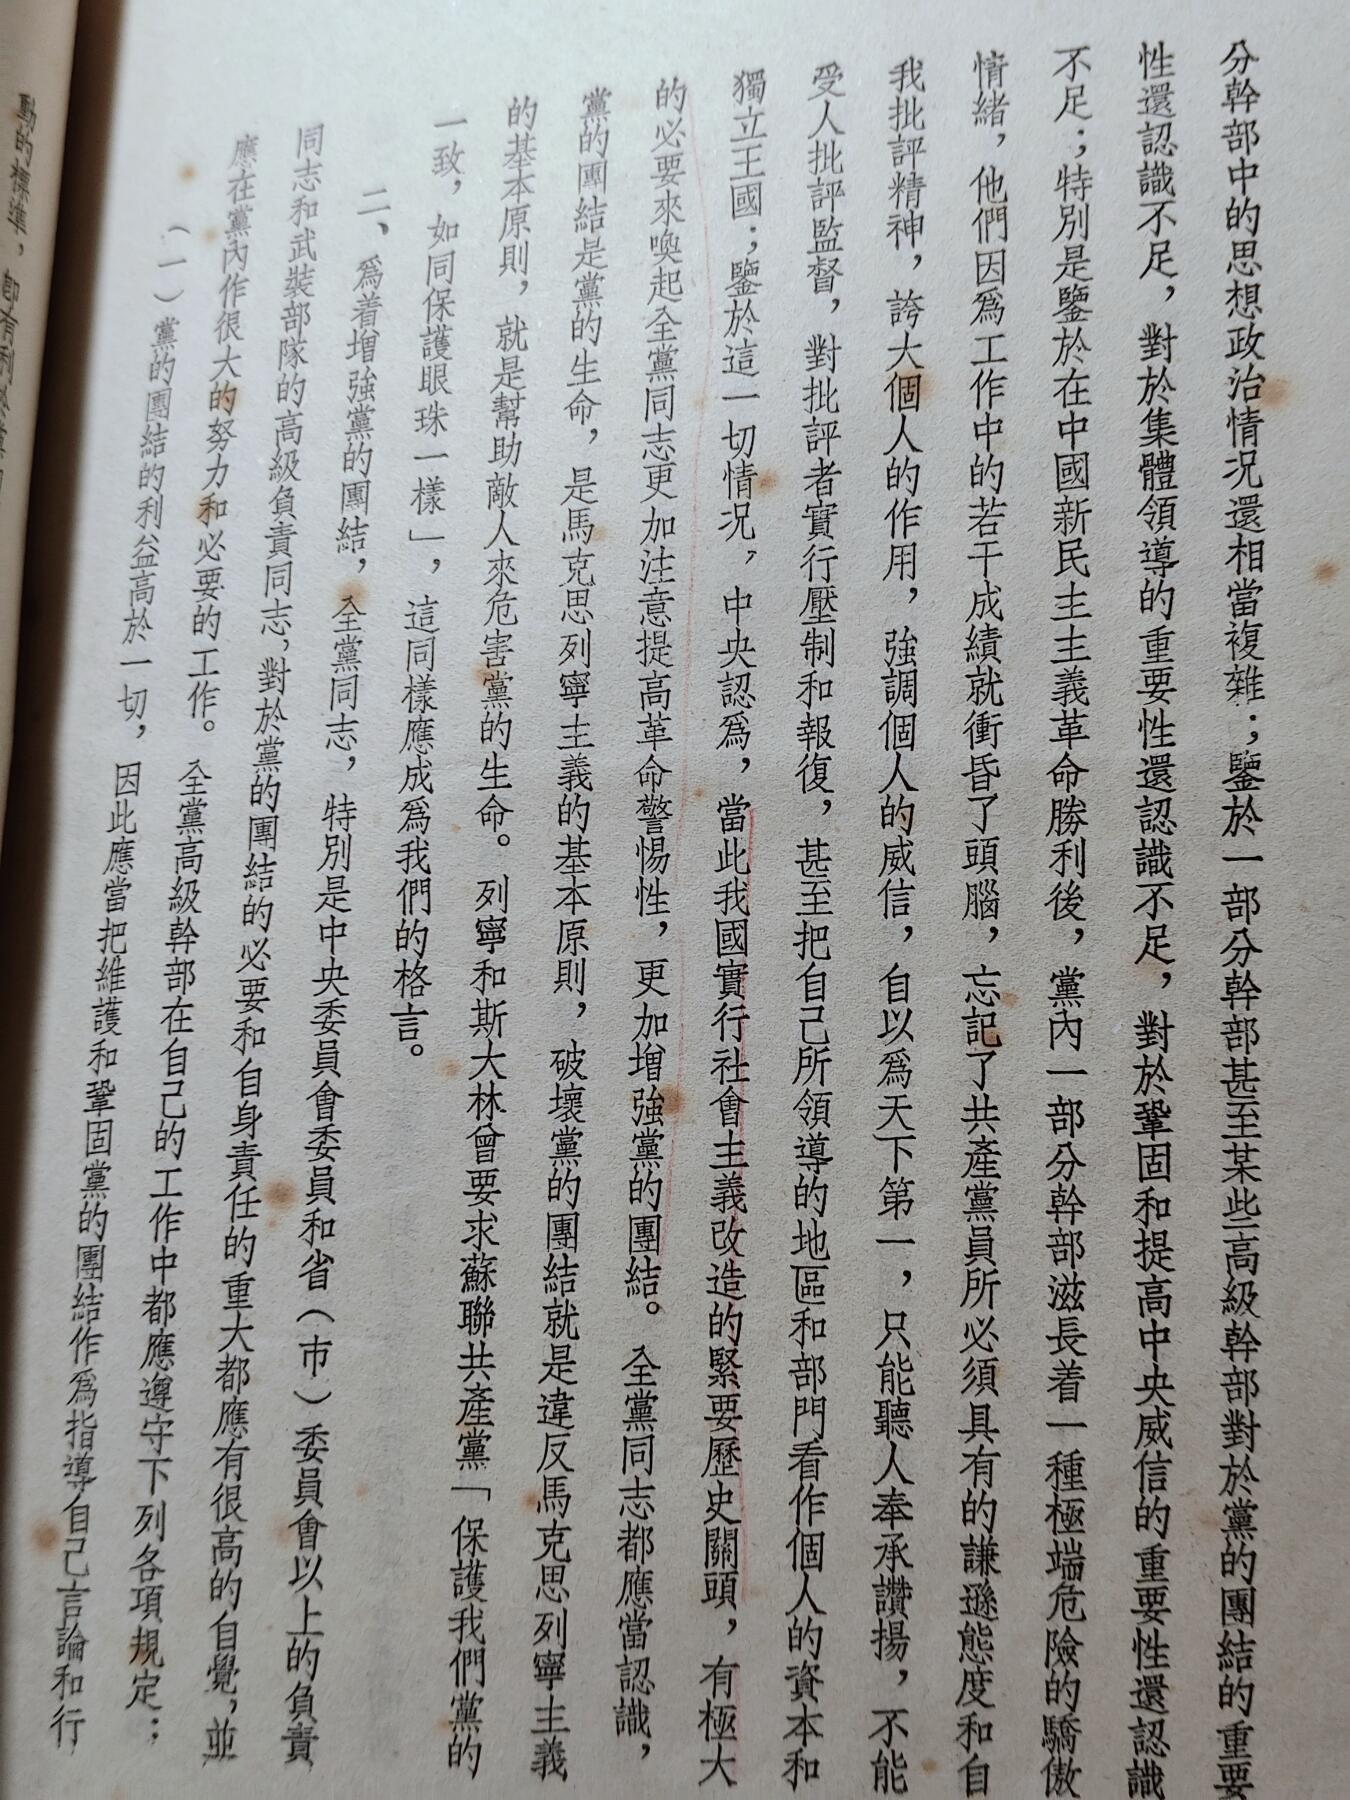 分幹部中的思想政治情况還相當複雜；鑒於一部分幹部甚至某些高級幹部對於黨的團結的重要
性還認識不足，對於集體領導的重要性還認識不足，對於鞏固和提高中央威信的重要性還認識
不足；特別是鑒於在中國新民主主義革命勝利後，黨內一部分幹部滋長着一種極端危險的驕傲
情緒，他們因爲工作中的若干成績就衝昏了頭腦，忘記了共產黨員所必須具有的謙遜態度和自
我批評精神，誇大個人的作用，強調個人的威信，自以爲天下第一，只能聽人奉承讚揚，不能
受人批評監督，對批評者實行壓制和報復，甚至把自己所領導的地區和部門看作個人的資本和
獨立王國；鑒於這一切情况，中央認爲，當此我國實行社會主義改造的緊要歷史關頭，有極大
的必要來喚起全黨同志更加注意提高革命警惕性，更加增強黨的團結。全黨同志都應當認識，
黨的團結是黨的生命，是馬克思列寧主義的基本原則，破壞黨的團結就是違反馬克思列寧主義
的基本原則，就是幫助敵人來危害黨的生命。列寧和斯大林曾要求蘇聯共產黨「保護我們黨的
一致，如同保護眼珠一樣」，這同樣應成爲我們的格言。
二、爲着增強黨的團結，全黨同志，特別是中央委員會委員和省（市）委員會以上的負責
同志和武裝部隊的高級負責同志，對於黨的團結的必要和自身責任的重大都應有很高的自覺，並
應在黨內作很大的努力和必要的工作。全黨高級幹部在自己的工作中都應遵守下列各項規定：
（一）黨的團結的利益高於一切，因此應當把維護和鞏固黨的團結作爲指導自己言論和行
動的標準，卽有利於黨的